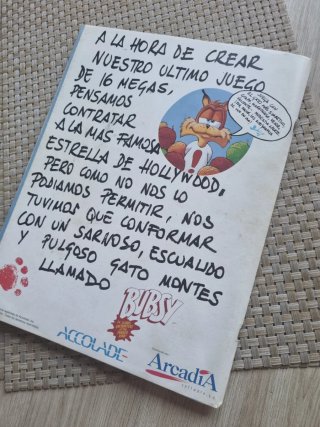 A LA HORA DE CREAR
NUESTRO ULTIMO JUEGO
DE 16 MEGAS,
PENSAMOS
CONTRATAR
A LA MAS FAMOSA
ESTRELLA DE HOLLYWOOD,
PERO COMO NO NOS LO
PODIAMOS PERMITIR, NOS
TUVIMOS QUE CONFORMAR
CON UN SARNOSO, ESCUALIDO
Y PULGOSO GATO MONTES
LLAMADO
BUBSY
ACCOLADE
ArcadiA
software